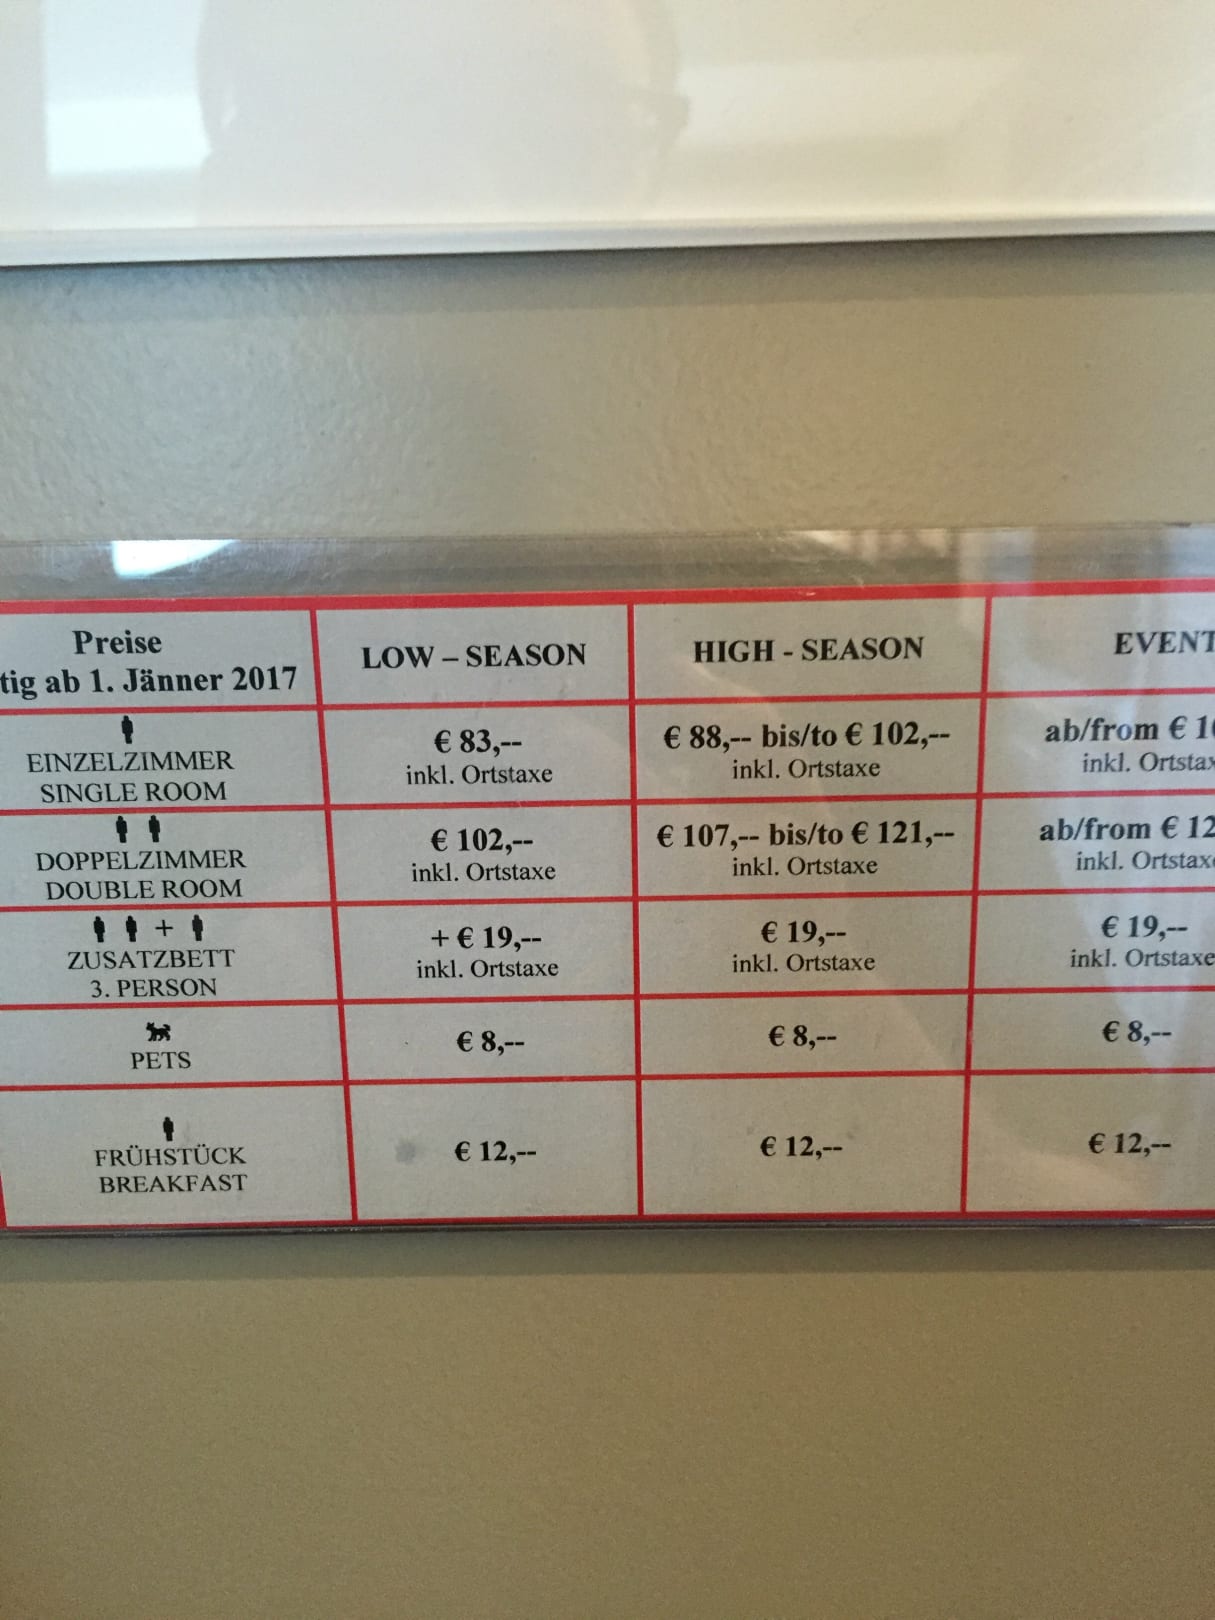 Preise
tig ab 1. Jänner 2017
LOW – SEASON
HIGH - SEASON
EVENT
EINZELZIMMER
SINGLE ROOM
€ 83,--
inkl. Ortstaxe
€ 88,-- bis/to € 102,--
inkl. Ortstaxe
ab/from € 1
inkl. Ortstax
DOPPELZIMMER
DOUBLE ROOM
€ 102,--
inkl. Ortstaxe
€ 107,-- bis/to € 121,--
inkl. Ortstaxe
ab/from € 12
inkl. Ortstax
+
ZUSATZBETT
3. PERSON
+ € 19,--
inkl. Ortstaxe
€ 19,--
inkl. Ortstaxe
€ 19,--
inkl. Ortstaxe
PETS
€ 8,--
€ 8,--
€ 8,--
FRÜHSTÜCK
BREAKFAST
€ 12,--
€ 12,--
€ 12,--